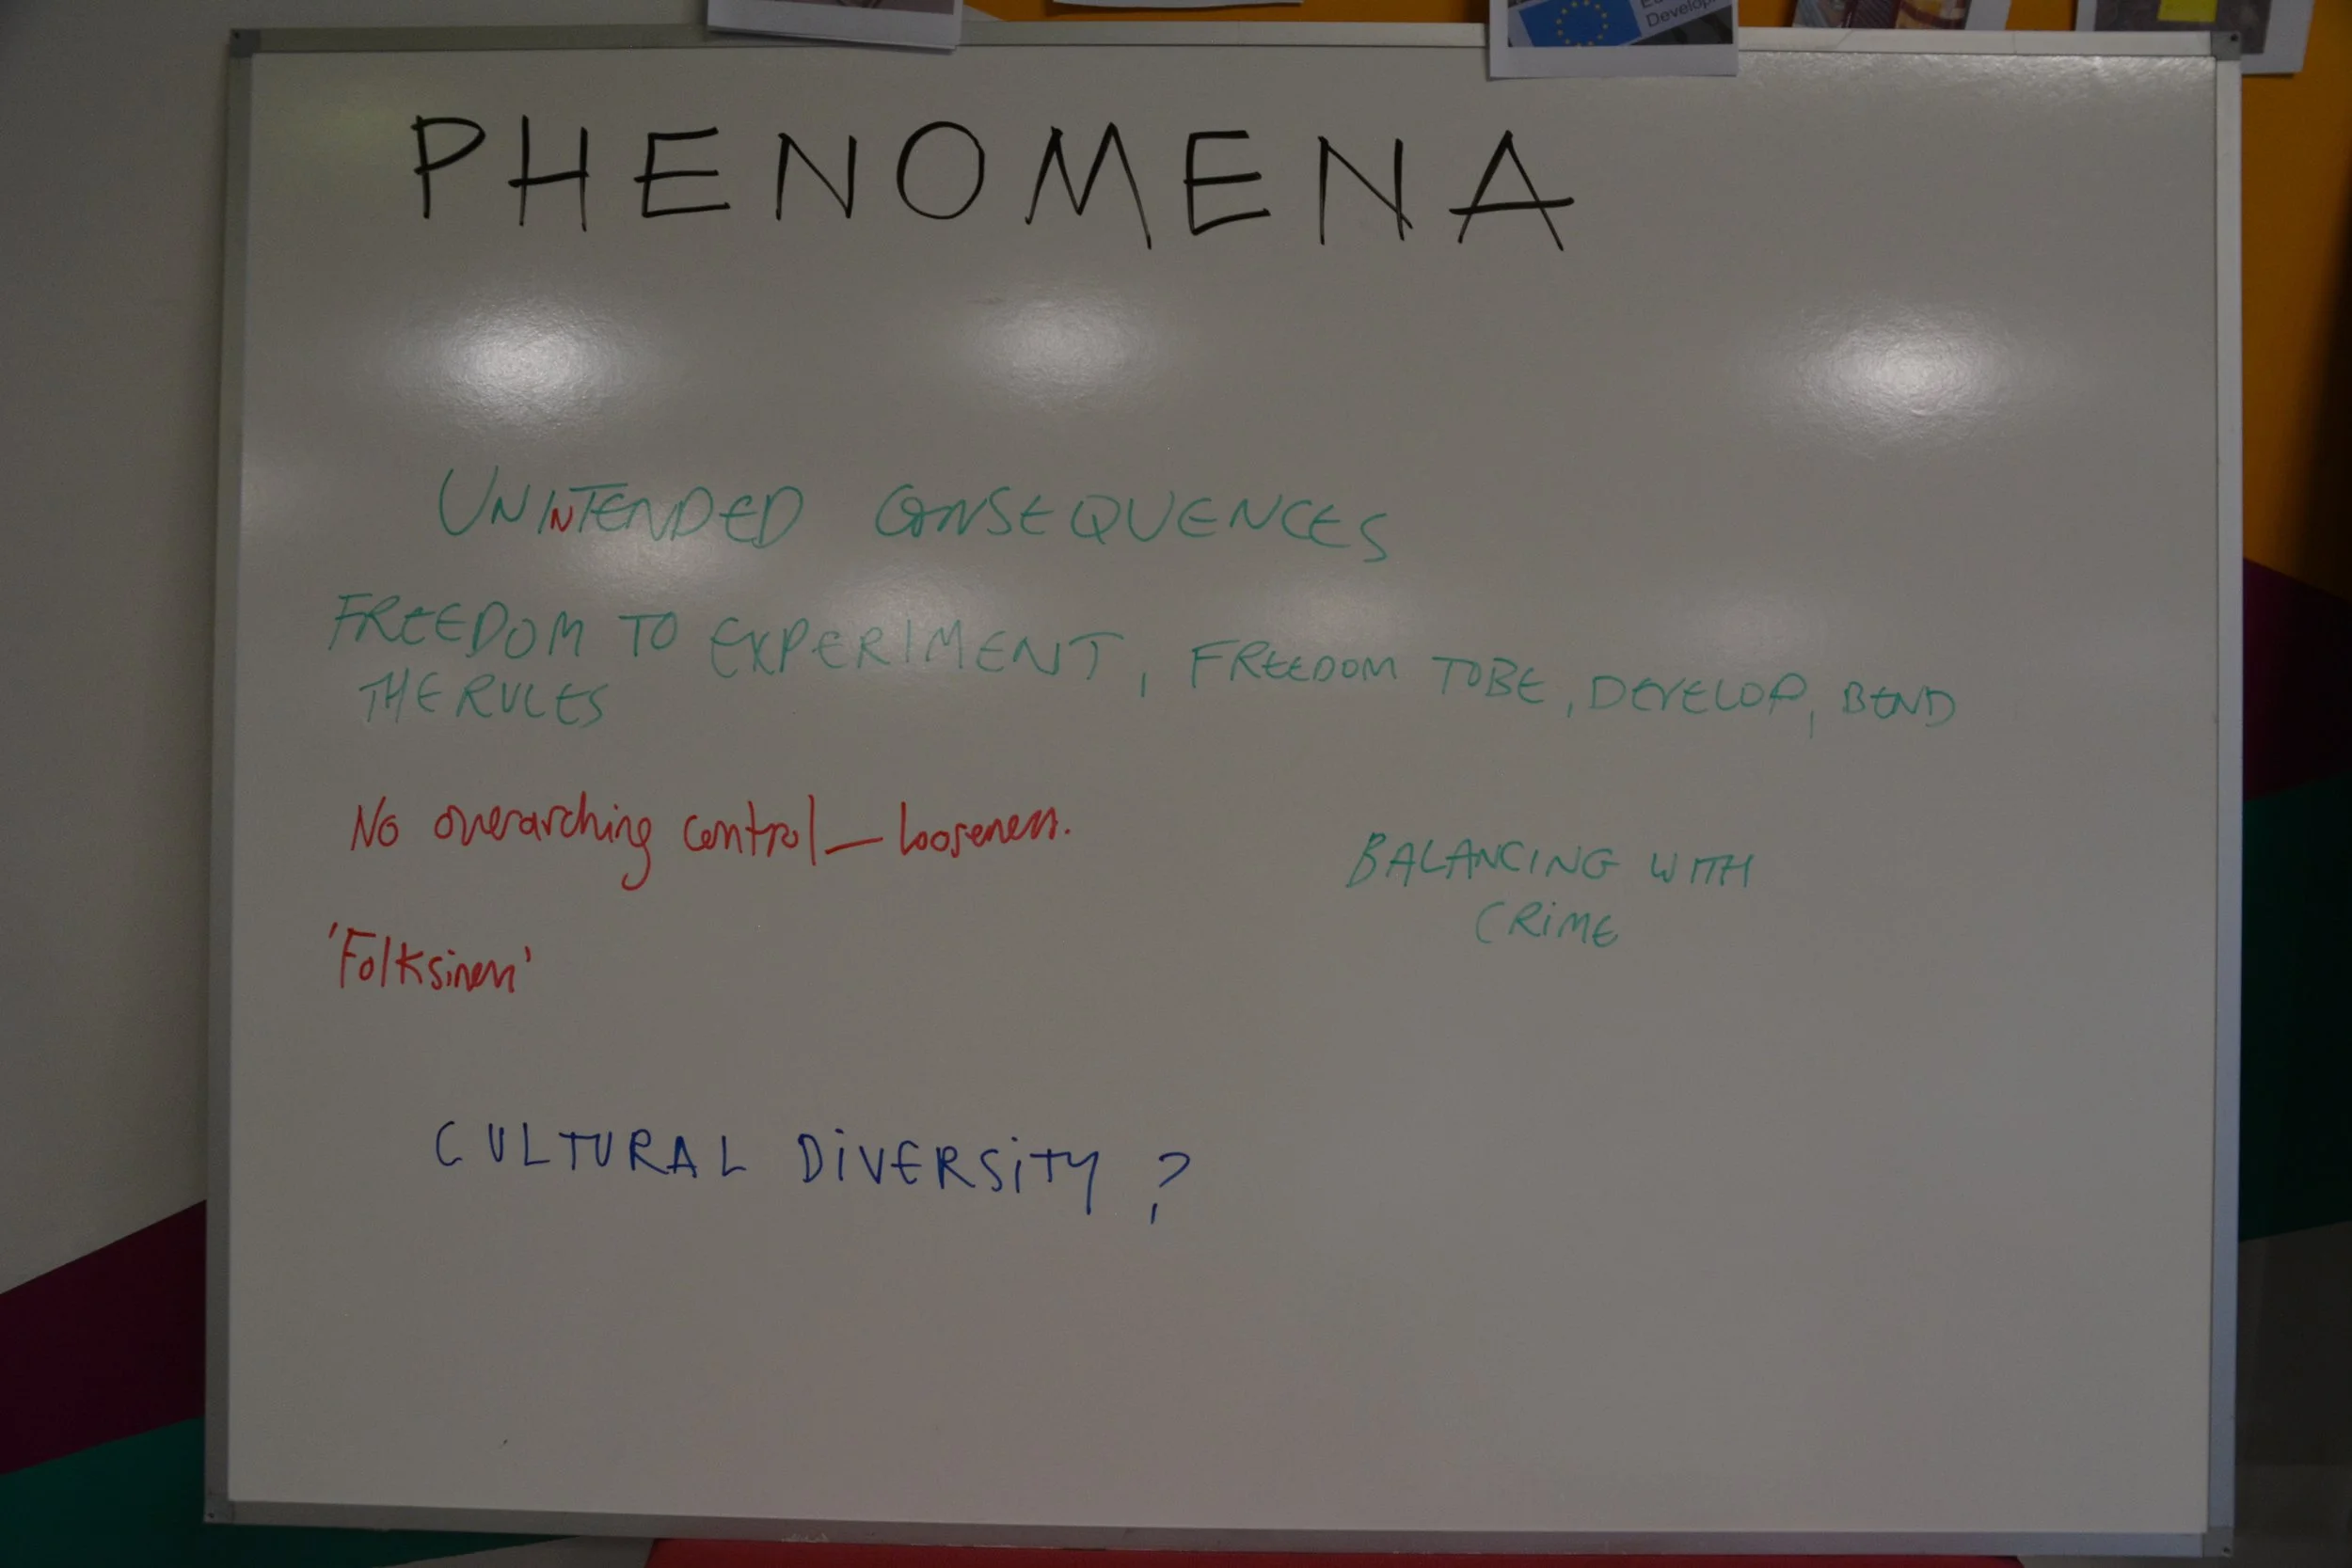 Develop
PHENOMENA
UNINTENDED CONSEQUENCES
FREEDOM TO EXPERIMENT, FREEDOM TO BE, DEVELOP, BEND
THE RULES
No overarching control – looseness.
BALANCING WITH
CRIME
CULTURAL DIVERSITY ?